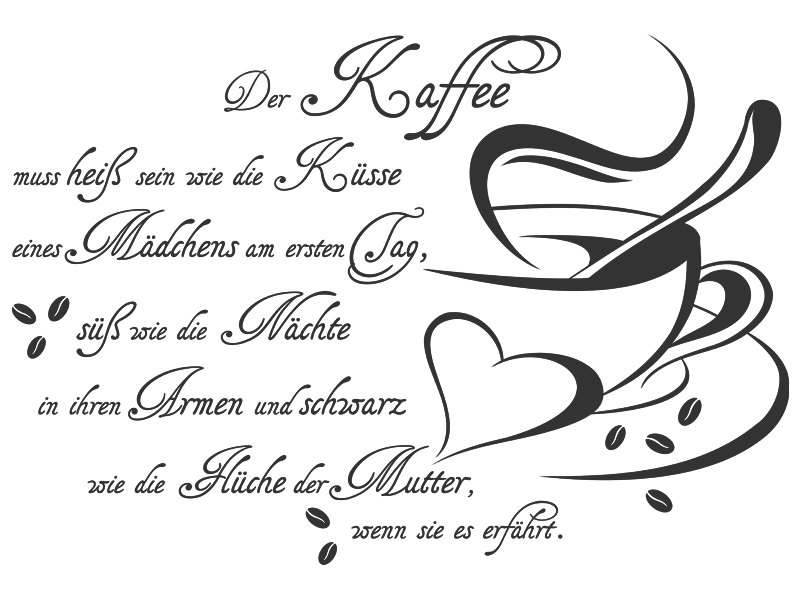 Der Kaffee
muss heiß sein wie die Küsse
eines Mädchens am ersten Tag,
süß wie die Nächte
in ihren Armen und schwarz
wie die Flüche der Mutter,
wenn sie es erfährt.